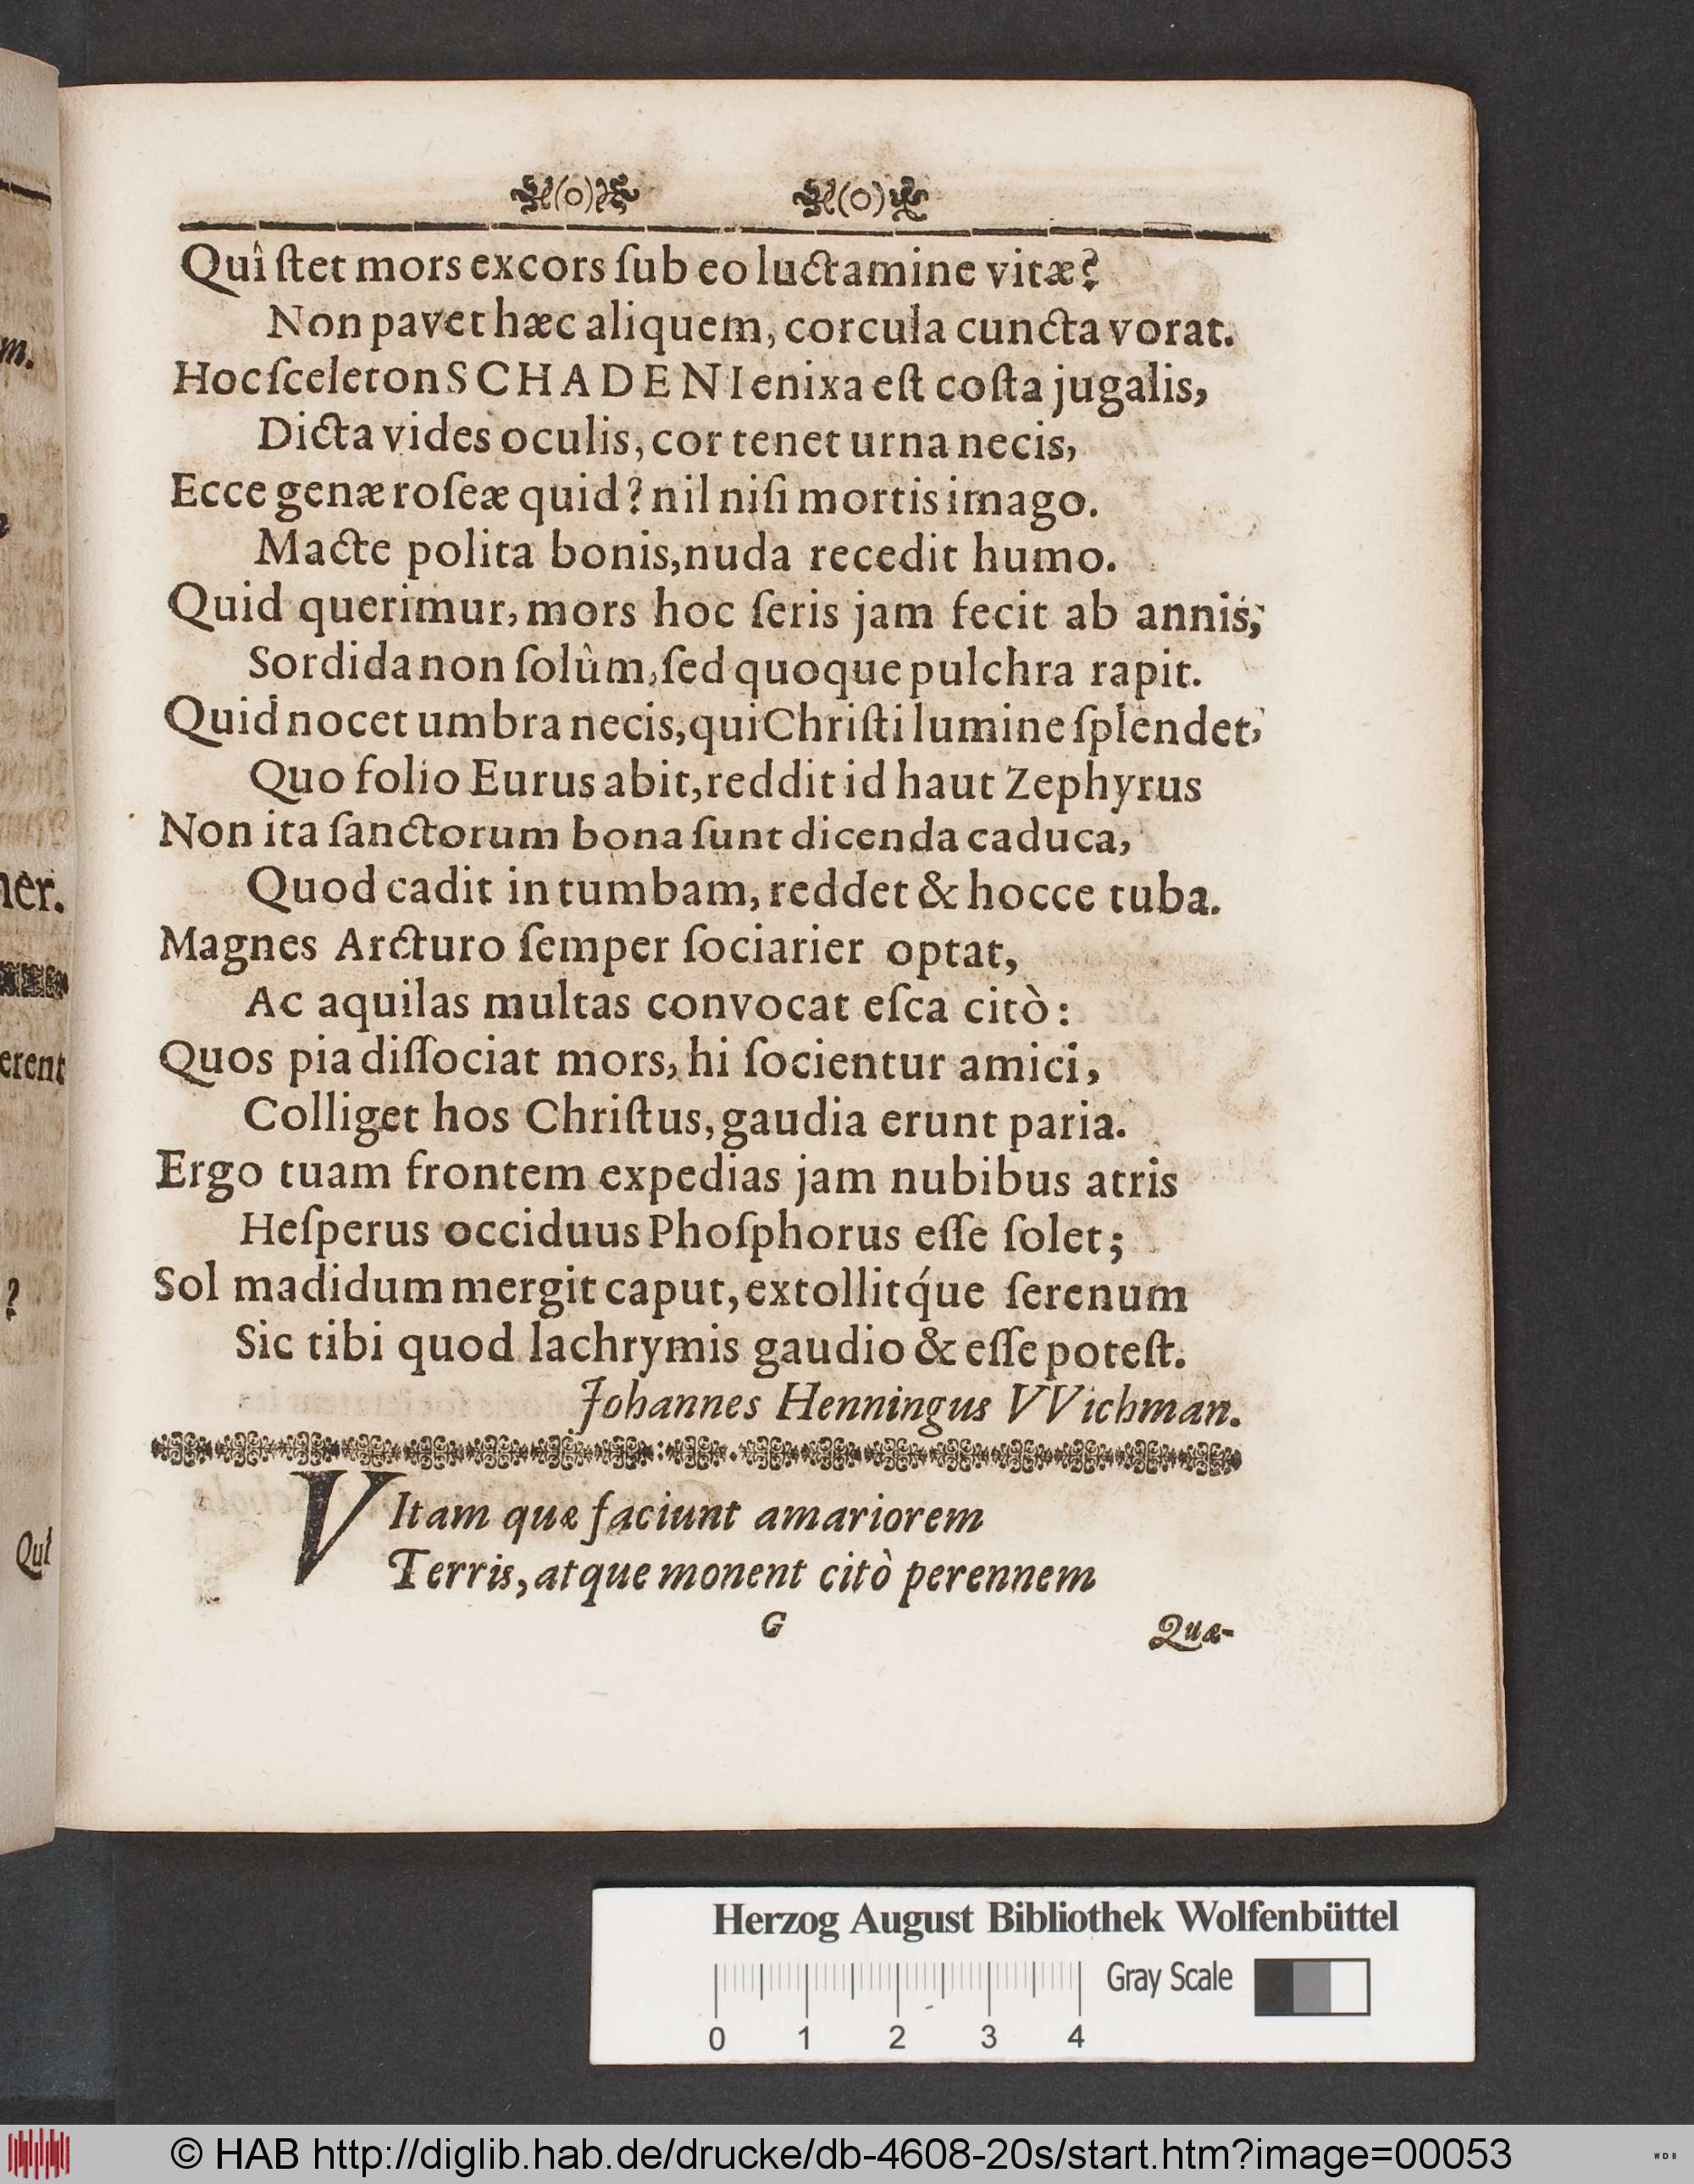 (o) (o)
Quî ſtet mors excors ſub eo luctamine vitæ?
Non pavet hæc aliquem, corcula cuncta vorat.
Hoc ſceleton SCHADENI enixa eſt coſta jugalis,
Dicta vides oculis, cor tenet urna necis,
Ecce genæ roſeæ quid? nil niſi mortis imago.
Macte polita bonis, nuda recedit humo.
Quid querimur, mors hoc ſeris jam fecit ab annis;
Sordida non ſolûm, ſed quoque pulchra rapit.
Quid nocet umbra necis, qui Chriſti lumine ſplendet,
Quo folio Eurus abit, reddit id haut Zephyrus
Non ita ſanctorum bona ſunt dicenda caduca,
Quod cadit in tumbam, reddet & hocce tuba.
Magnes Arcturo ſemper ſociarier optat,
Ac aquilas multas convocat eſca citò:
Quos pia diſſociat mors, hi ſocientur amici,
Colliget hos Chriſtus, gaudia erunt paria.
Ergo tuam frontem expedias jam nubibus atris
Heſperus occiduus Phoſphorus eſſe ſolet;
Sol madidum mergit caput, extollitq́ue ſerenum
Sic tibi quod lachrymis gaudio & eſſe poteſt.
Johannes Henningus VVichman.
VItam quæ faciunt amariorem
Terris, atque monent citò perennem
G Quæ-
m.
ner.
erent
?
Qui
Herzog August Bibliothek Wolfenbüttel
Gray Scale
0 1 2 3 4
© HAB http://diglib.hab.de/drucke/db-4608-20s/start.htm?image=00053
WDB